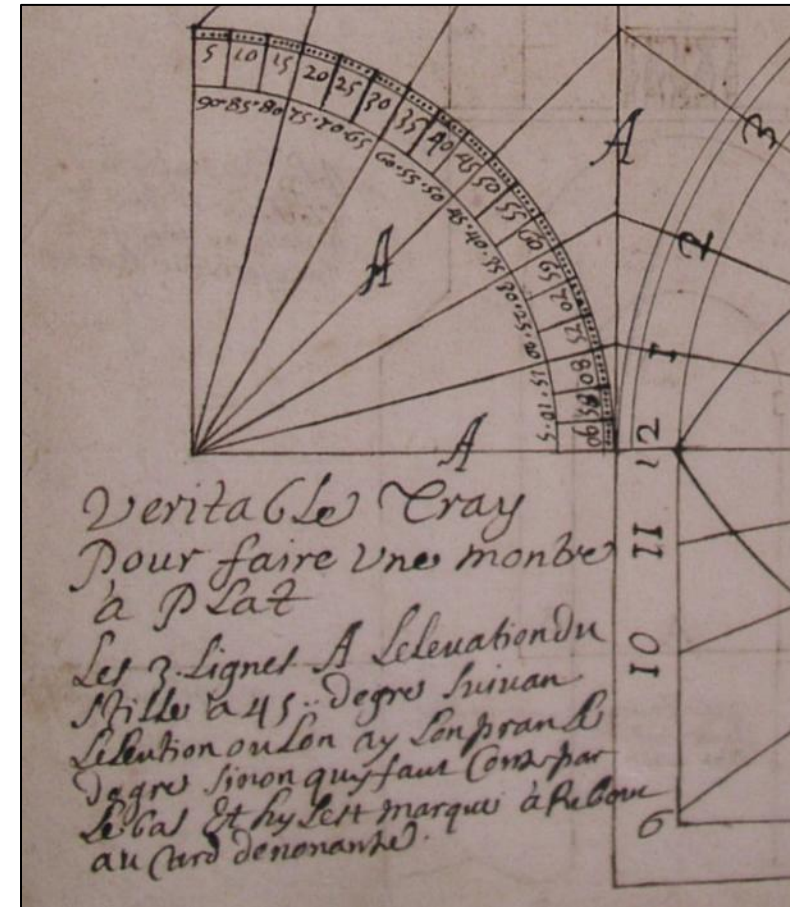 5 10 15 20 25 30 35 40 45 50 55 60 65 70 75 80 85 90
90 · 85 · 80 75 · 70 · 65 60 · 55 · 50 45 · 40 · 35 30 · 25 · 20 15 · 10 · 5
A
A
A
3
2
1
12
11
10
6
Veritable Tray
Pour faire Une montre
à PLat
Les 3 Lignes A Lelevation du
stille a 45 .. degre suivan
Lelevtion ou Lon ay Lon pran Le
degre sinon quy faut Conte par
Le bas Et hy Lest marque à Rebour
au Card denonante.